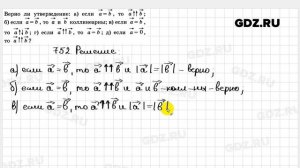 Верно ли утверждение: а) если a⃗=b⃗, то a⃗↑↑b⃗;
б) если a⃗=b⃗, то a⃗ и b⃗ коллинеарны; в) если a⃗=b⃗,
то a⃗↑↓b⃗; г) если a⃗↑↑b⃗, то a⃗=b⃗; д) если a⃗=0⃗,
то a⃗↑↑b⃗?
752 Решение
а) если a⃗=b⃗, то a⃗↑↑b⃗ и |a⃗|=|b⃗| - верно,
б) если a⃗=b⃗, то a⃗↑↑b⃗ ⇒ a⃗ и b⃗ - колл-ны - верно,
в) если a⃗=b⃗, то a⃗↑↑b⃗ и |a⃗|=|b⃗|,